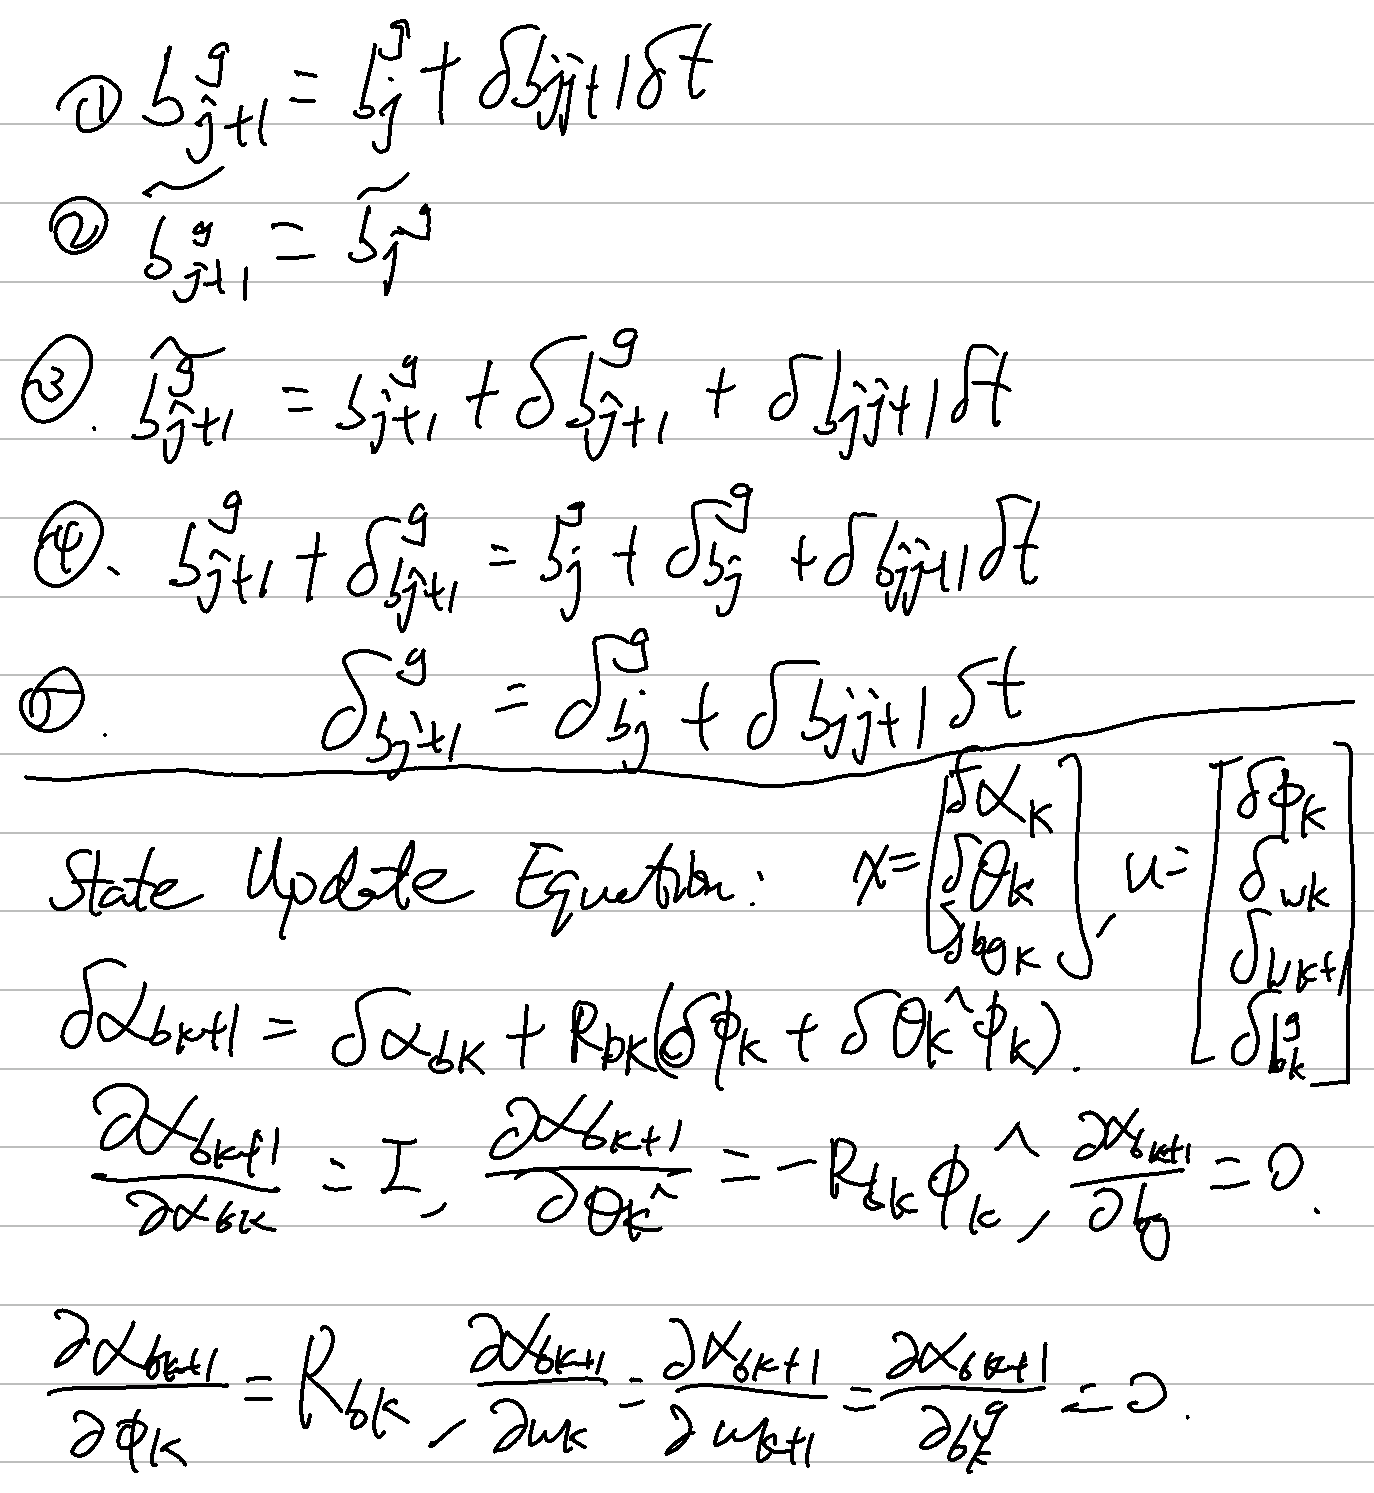 ① b^g_{j+1} = b^g_j + δb_{jj+1}δt
② \tilde{b}^g_{j+1} = \tilde{b}^g_j
③. \hat{\tilde{b}}^g_{j+1} = b^g_{j+1} + δb^g_{j+1} + δb_{jj+1}δt
④、b^g_{j+1} + δ^g_{b_{j+1}} = b^g_j + δ^g_{b_j} + δb_{jj+1}δt
⑤. δ^g_{b_{j+1}} = δ^g_{b_j} + δb_{jj+1}δt
State Update Equation: x = [δα_k; δθ_k; δbg_k], u = [δϕ_k; δ_{wk}; δ_{wk+1}; δ_{b^g_k}]
δα_{bk+1} = δα_{bk} + R_{bk}(δϕ_k + δθ_k^∧ϕ_k).
∂α_{bk+1}/∂α_{bk} = I, ∂α_{bk+1}/∂θ_k^∧ = -R_{bk}ϕ_k^∧, ∂α_{bk+1}/∂b_g = 0.
∂α_{bk+1}/∂ϕ_k = R_{bk}, ∂α_{bk+1}/∂w_k = ∂α_{bk+1}/∂w_{k+1} = ∂α_{bk+1}/∂b^g_k = 0.